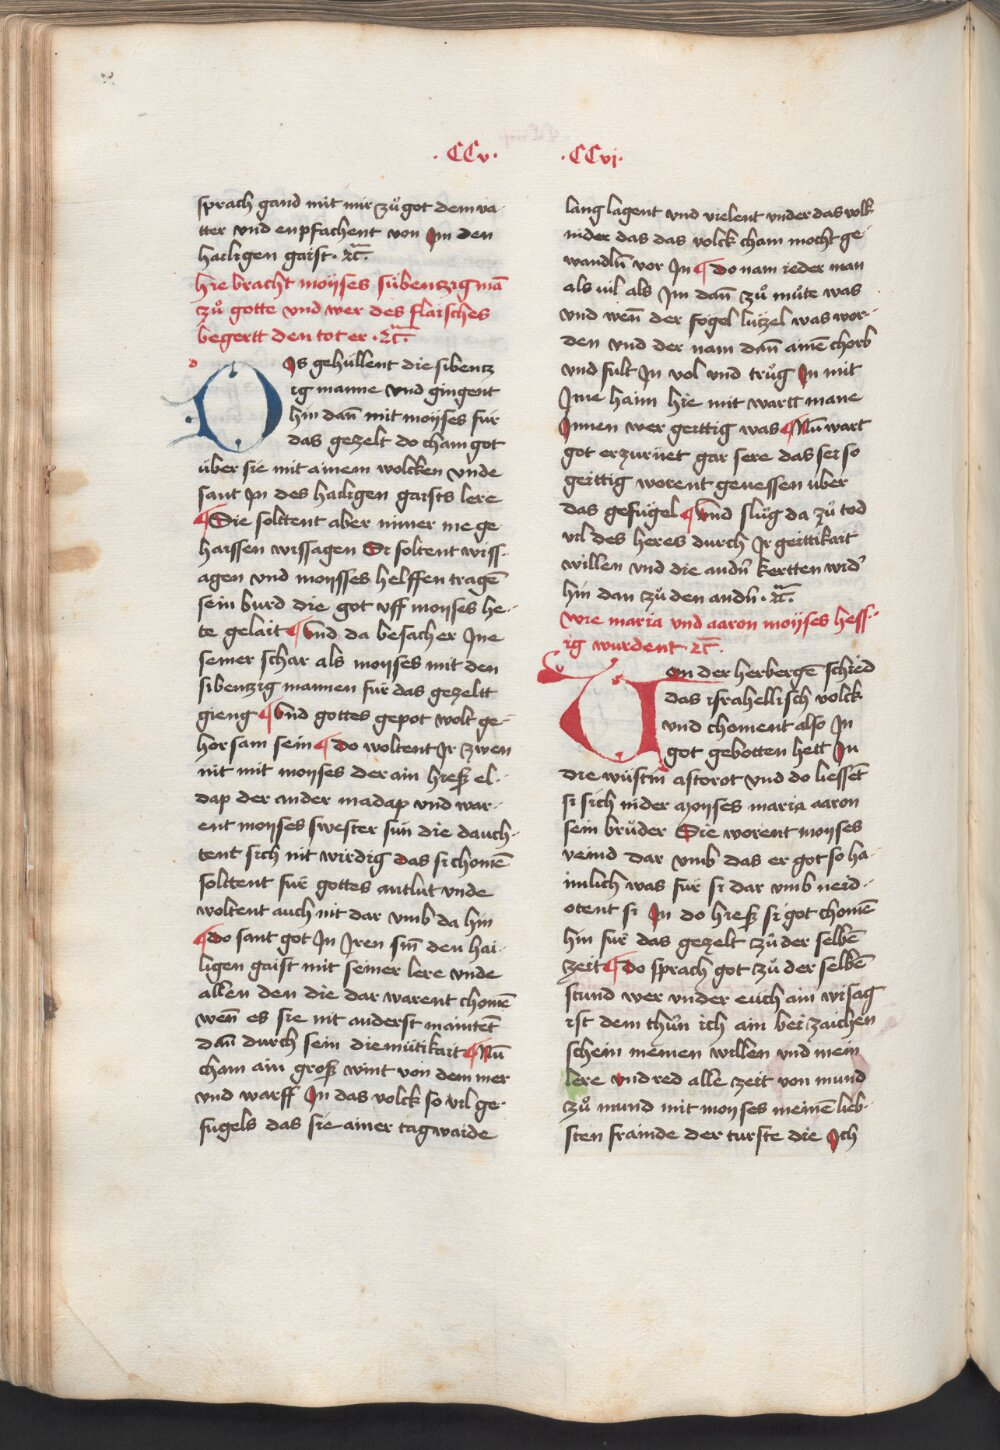 ·CCv·
sprach gand mit mir zů got dem va-
tter vnd enpfachent von Im den
hailigen gaist· ꝛc̄·
hie bracht moÿses sübenzig mā
zů gotte vnd wer des flaisches
begertt den tot er· ꝛc̄·
DIs gehüllent die sibentz
ig manne vnd gingent
hin dañ mit moÿses für
das gezelt do cham got
über sie mit ainem wolcken vnde
sant In des hailigen gaists lere
¶ Die solttent aber nimer me ge
haissen wissagen Si soltent wiss-
agen vnd moÿsses helffen tragē
sein burd die got vff moÿses he-
te gelait ¶ Vnd da besach er Ine
seiner schar als moÿses mit den
sibentzig mannen für das gezeltt
gieng ¶ Vnd gottes gepot wolt ge-
horsam sein ¶ do woltent Ir zwen
nit mit moÿses der ain hieß el-
dap der ander madap vnd war-
ent moÿses swester sün die dauch-
tent sich nit wirdig das si chomē
solttent für gottes antlut vnde
woltent auch nit dar vmb da hin
¶ do sant got In Iren sin̄ den hai-
ligen gaist mit seiner lere vnde
allen den die dar warent chomē
weñ es sie nit anderst maintet̄
dañ durch sein diemütikait ¶ Nū
cham ain groß wint von dem mer
vnd warff In das volck so vil ge-
fugels das sie ainer tagwaide
·CCvj·
lang lagent vnd vielent vnder das volk
nider das das volck cham mocht ge-
wandlñ vor In ¶ do nam ieder man
als vil als Im dañ zů müte was
vnd weñ der fogel lützel was wor-
den vnd der nam dañ ainē chorb
vnd fult In vol vnd trůg In mit
Ime haim hie mit wartt mane
Innen wer geittig was ¶ Nū wart
got erzürnet gar sere das sei so
geittig worent genessen über
das gefügel ¶ Vnd slüg da zů tod
vil des heres durch Ir geittikait
willen vnd die andñ kertten wid'
hin dan zů den andñ· ꝛc̄·
wie maria vnd aaron moÿses hess-
ig wurdent· ꝛc̄·
Von der herbergē schied
das israhellisch volck
vnd choment also In
got gebotten hett In
die wüstin̄ astorot vnd do liessēt
si sich nider moÿses maria aaron
sein brüder Die worent moÿses
veind dar vmb das er got so ha-
imlich was für si dar vmb neid-
otent si In do hieß si got chomē
hin für das gezelt zů der selbē
zeit ¶ do sprach got zů der selbē
stund wer vnder euch ain wisag
ist dem thůn ich ain bei zaichen
schein meinen willen vnd mein
lere vnd red alle zeit von mund
zů mund mit moÿses meinē lieb-
sten frainde der turste die Ich